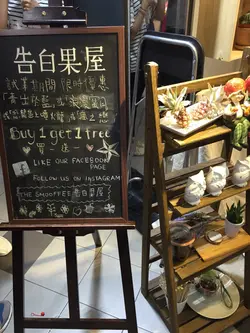 告白果屋
試業期間 限時優惠
Buy 1 get 1 free
買一送一
LIKE OUR FACEBOOK
PAGE
FOLLOW US ON INSTAGRAM
THE SMOOFEEE 告白果屋